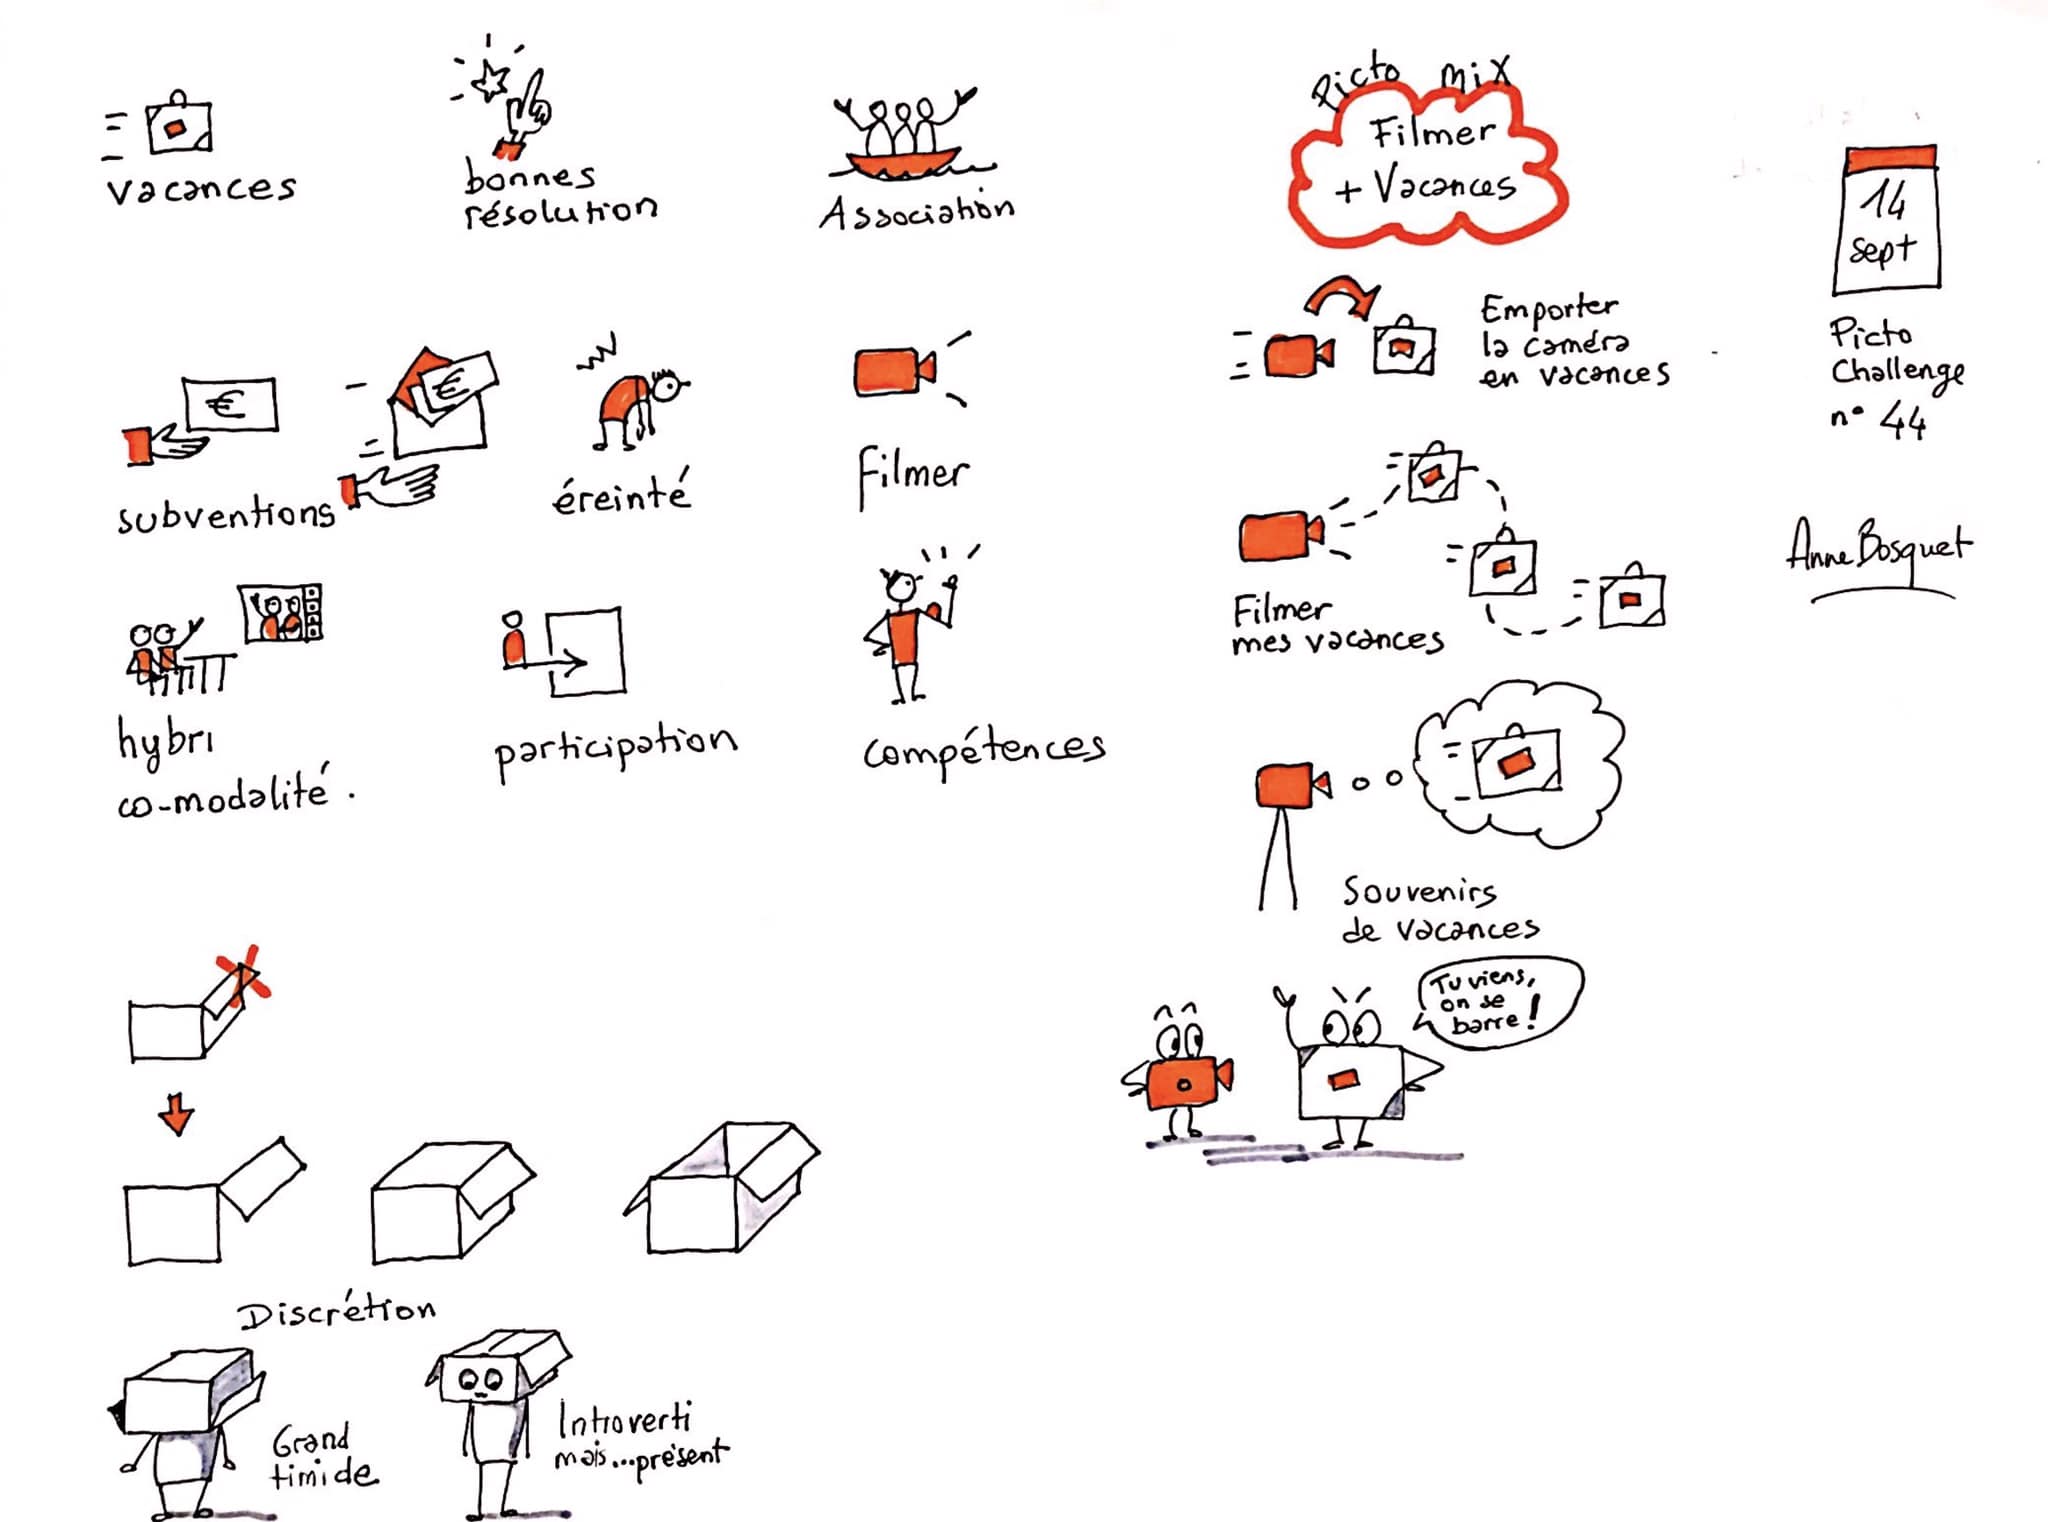 vacances
bonnes
résolution
Association
€
€
subventions
éreinté
Filmer
hybri
co-modalité.
participation
compétences
Discrétion
Grand
timide
Introverti
mais...présent
Picto mix
Filmer
+ Vacances
Emporter
la caméra
en vacances
Filmer
mes vacances
Souvenirs
de vacances
Tu viens,
on se
barre!
14
sept
Picto
Challenge
n° 44
Anne Bosquet